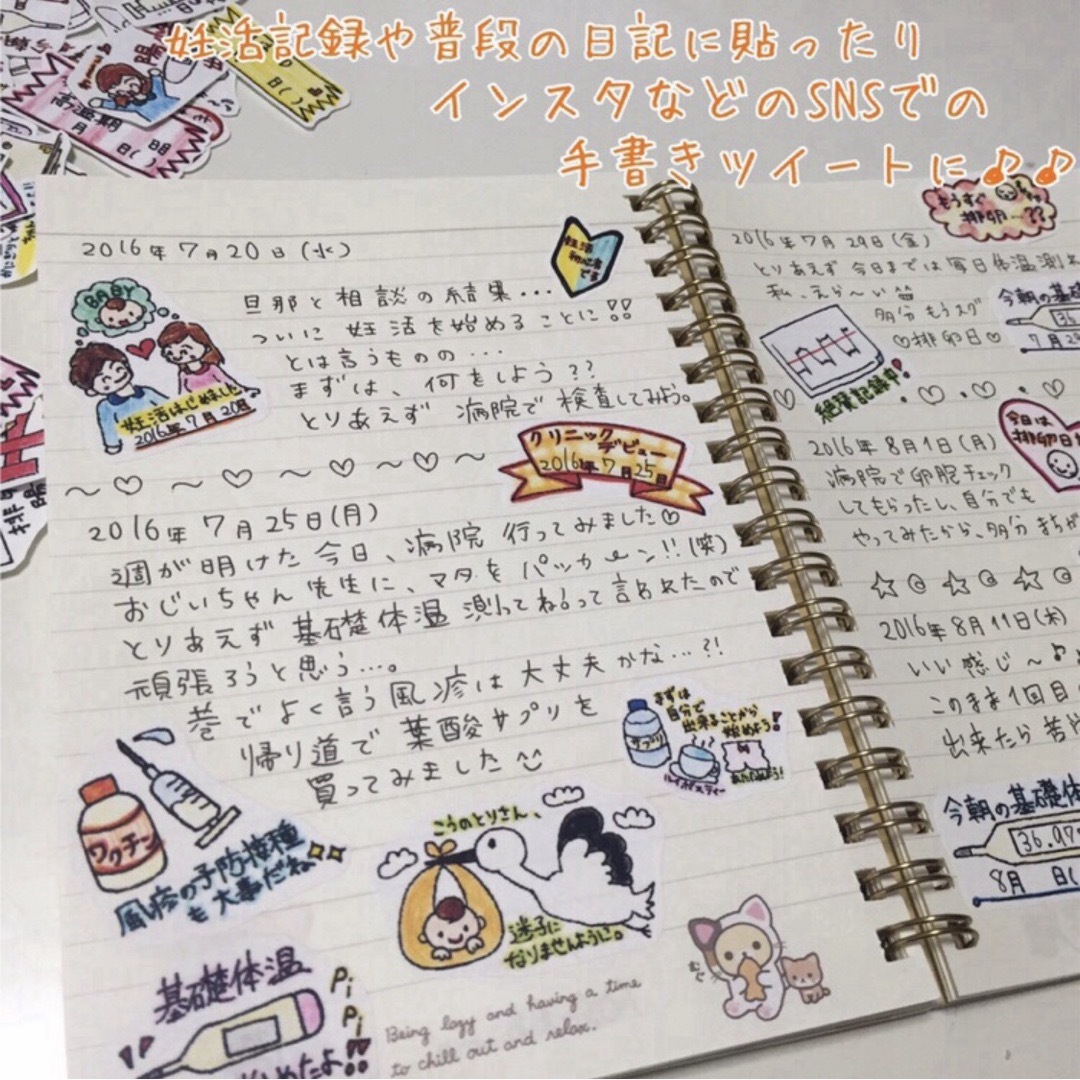 妊活記録や普段の日記に貼ったり
インスタなどのSNSでの
手書きツイートに♪♪
高温期
2016年7月20日(水)
妊活
初心者
です
BABY
妊活はじめました
2016年7月20日
旦那と相談の結集...
ついに 妊活を始めることに!!
とは言うものの...
まずは、何をしよう??
とりあえず 病院で 検査してみよう。
クリニック
デビュー
2016年7月25日
2016年7月25日(月)
週が明けた今日、病院 行ってみました♡
おじいちゃん先生に、マタをパッカーン!!(笑)
とりあえず 基礎楚体温 測ってねって言われたので
頑張ろうと思う...。
巷でよく言う風疹は大丈夫かな...?!
帰り道で 葉酸サプリを
買ってみました
まずは
自分で
出来ることから
始めよう!
サプリ
ルイボスティー
ワクチン
風疹の予防接種
も大事だね
こうのとりさん、
迷子に
なりませんように。
基礎体温
Pi
Pi
むぐ
Being lazy and having a time
to chill out and relax.
もうすぐ
排卵...??
2016年7月29日(金)
とりあえず 今日までは 毎日体温測
私、えら〜い
多分 もうスグ
♡排卵日♡
今朝の基礎
36.
7月2
絶賛記録中!
今日は
排卵日
2016年8月1日(月)
病院で卵胞チェック
してもらったし、自分でも
やってみたから、多分 まちが
2016年8月11日(木)
いい感じ〜♪
このまま1回目
出来たら
今朝の基礎体
36.97
8月 日(